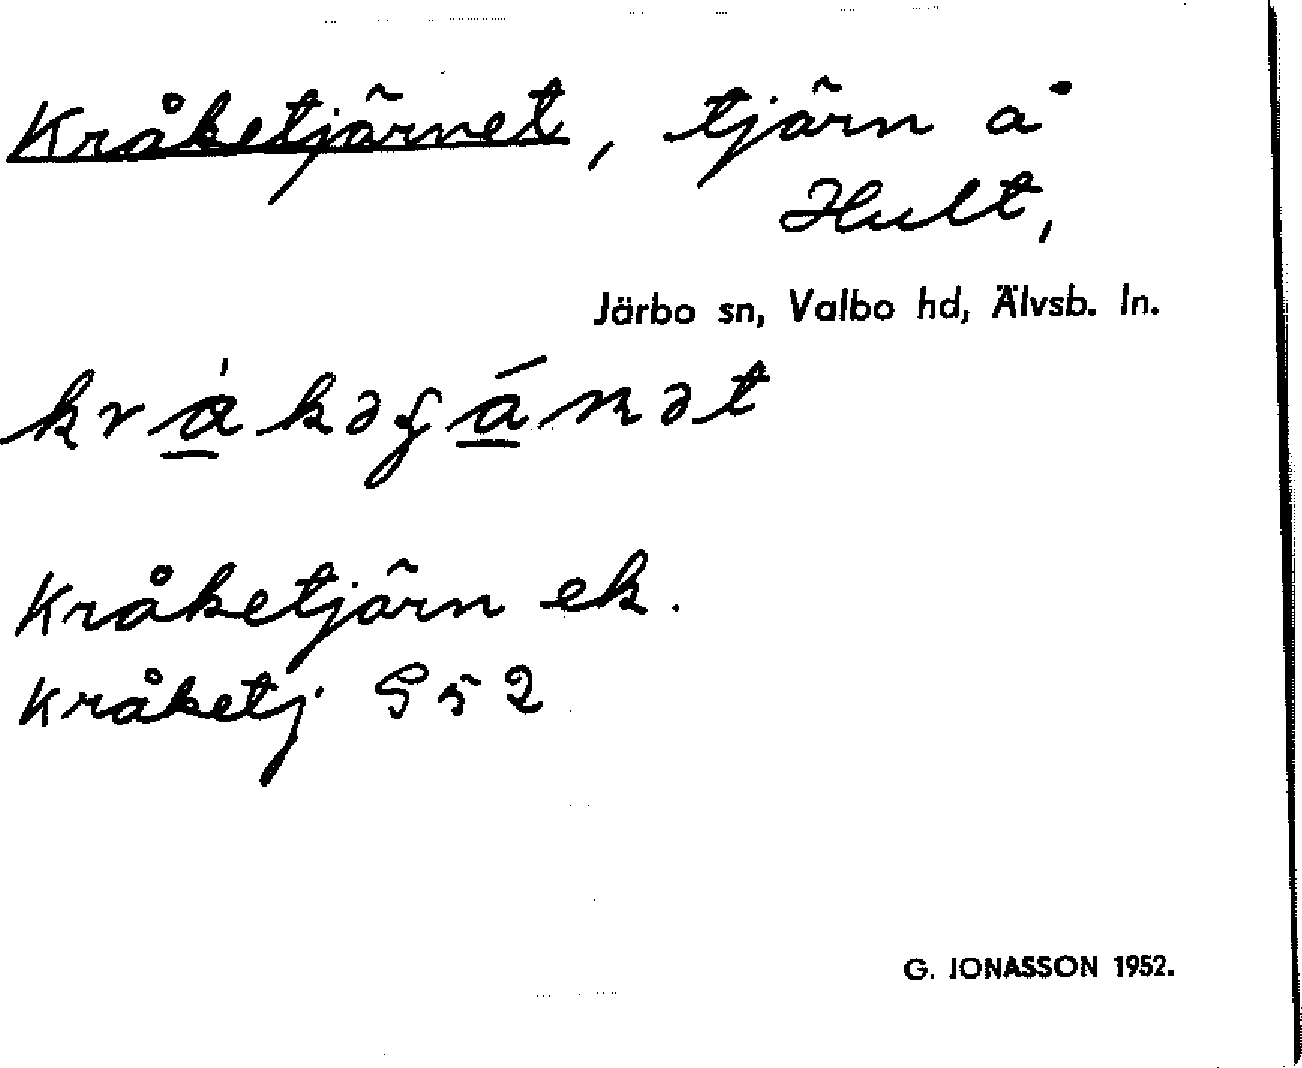 Kråketjärnet, tjärn å
Hult,
Järbo sn, Valbo hd, Älvsb. ln.
Kråketjärn ek.
Kråketj G 52
G. JONASSON 1952.